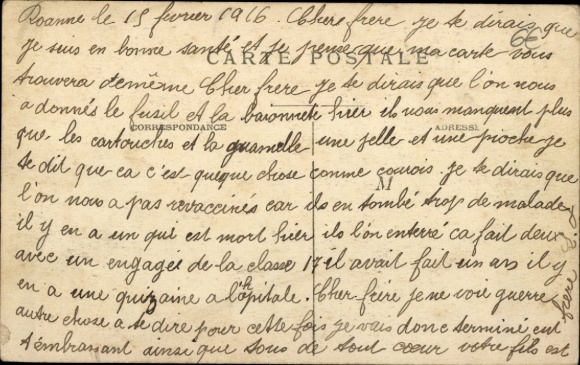 Roanne le 15 fevrier 1916. Cher frere je te dirais que
6€
je suis en bonne santé et je pense que ma carte vous
CARTE POSTALE
trouvera demême Cher frere je te dirais que l'on nous
a donnés le fusil et la baionnete hier il nous manquent plus
que les cartouches et la guamelle une pelle et une pioche je
CORRESPONDANCE
ADRESSE
te dit que ca c'est queque chose comme courois. je te dirais que
M
l'on nous a pas revaccinés car ils en tombé trop de malade
il y en a un qui est mort hier ils l'on enterré ca fait deux
avec un engagée de la classe 17 il avait fait un ans il y
en a une quizaine a l'hopitale. Cher frere je ne voie guerre
autre chose a te dire pour cette fois je vais donc terminé ent
t'embrassant ainsi que tous de tout cœur votre fils est
frere